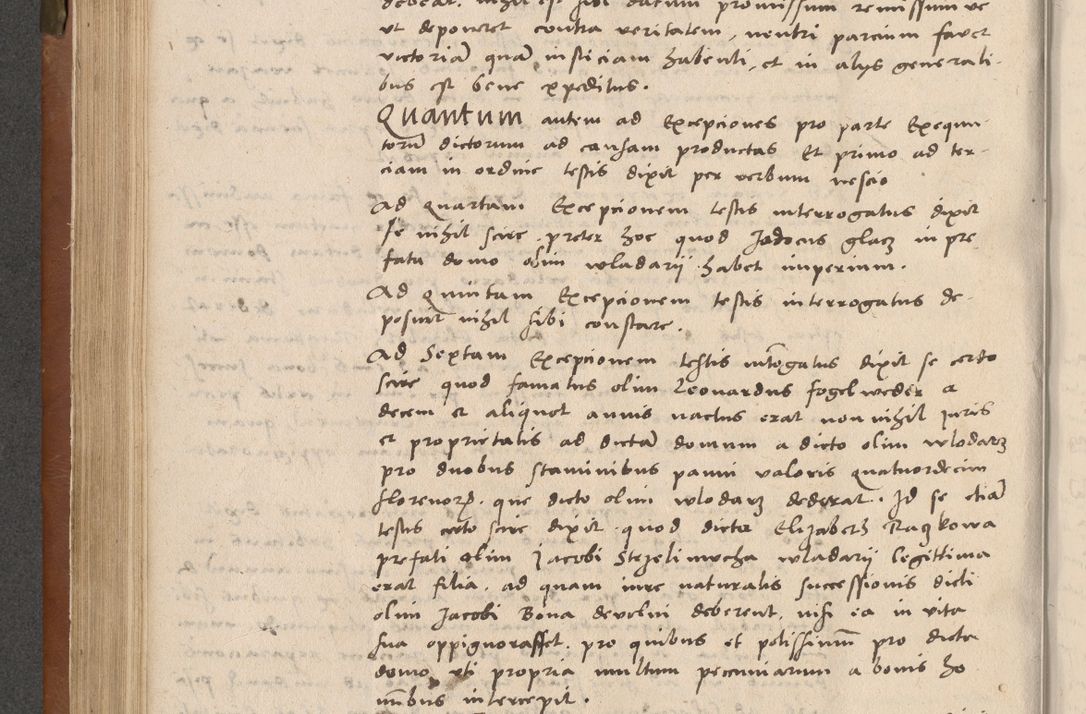 debeat. nihil est sibi datum promissum remissum ve
ut deponeret contra veritatem, neutri parcium favet
victoriam quam insticiam habenti, et in alys generali-
bus est bene expeditus.
Quantum autem ad Excepciones pro parte Exequu-
torum dictorum ad causam productas Et primo ad ter-
ciam in ordine testis dixit per verbum nescio
Ad Quartam Excepcionem testis interrogatus dixit
se nihil scire preter hoc quod Jadocus glacz in pre
fata domo olim wladarii habet imperium.
Ad Quintam Excepcionem testis interrogatus de-
posuit nihil sibi constare.
Ad Sextam Excepcionem testis interogatus dixit se certo
scire quod famatus olim Leonardus fogelweder a
decem et aliquot annis nactus erat non nihil juris
et proprietatis ad dictam domum a dicto olim wlodarz
pro duobus staminibus panni valoris quatuordecim
florenorum. que dicto olim wlodarz dederat. Id se etiam
testis certo scire dixit quod dicta Elizabetz Raczkowa
prefati olim Jacobi Stezelimucha wladarii legittima
erat filia. ad quam jure naturalis successionis dicti
olim Jacobi Bona devolvi deberent, nisi ea in vita
sua oppignorasset. pro quibus et potissimum pro dicta
domo uti propria multum pecuniarum a bonis ho
minibus intercepit.